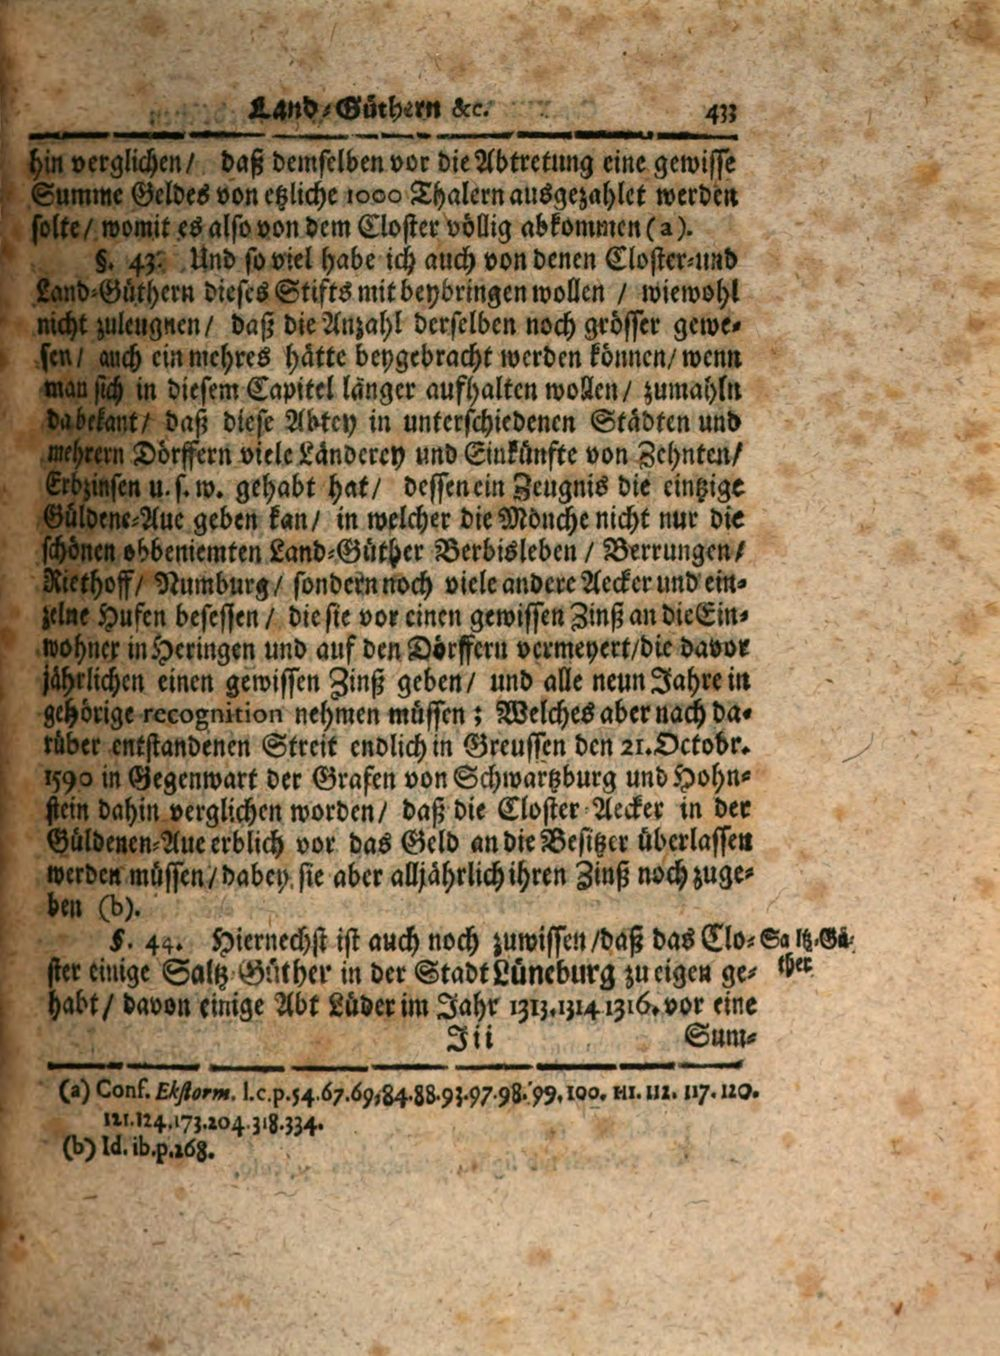 Land-Güthern &c. 433
hin verglichen / daß demselben vor die Abtretung eine gewisse
Summe Geldes von etzliche 1000 Thalern ausgezahlet werden
solte / womit es also von dem Closter völlig abkommen (a).
§. 43. Und so viel habe ich auch von denen Closter-und
Land-Güthern dieses Stifts mit beybringen wollen / wiewohl
nicht zuleugnen / daß die Anzahl derselben noch grösser gewe-
sen / auch ein mehres hätte beygebracht werden können / wenn
man sich in diesem Capitel länger aufhalten wollen / zumahln
da bekant / daß diese Abtey in unterschiedenen Städten und
mehrern Dörffern viele Länderey und Einkünfte von Zehnten /
Erbzinsen u. s. w. gehabt hat / dessen ein Zeugnis die eintzige
Güldene-Aue geben kan / in welcher die Mönche nicht nur die
schönen obbeniemten Land-Güther Berbisleben / Berrungen /
Riethoff / Numburg / sondern noch viele andere Aecker und ein-
zelne Hufen besessen / die sie vor einen gewissen Zinß an die Ein-
wohner in Heringen und auf den Dörffern vermeyert / die davor
jährlichen einen gewissen Zinß geben / und alle neun Jahre in
gehörige recognition nehmen müssen ; Welches aber nach da-
rüber entstandenen Streit endlich in Greussen den 21. Octobr.
1590 in Gegenwart der Grafen von Schwartzburg und Hohn-
stein dahin verglichen worden / daß die Closter-Aecker in der
Güldenen-Aue erblich vor das Geld an die Besitzer überlassen
werden müssen / dabey sie aber alljährlich ihren Zinß noch zuge-
ben (b).
§. 44. Hiernechst ist auch noch zuwissen / daß das Clo-
ster einige Saltz-Güther in der Stadt Lüneburg zu eigen ge-
habt / davon einige Abt Lüder im Jahr 1313. 1314 1316. vor eine
Saltz-Gü-
ther
Iii Sum-
(a) Conf. Ekstorm. l. c. p. 54. 67. 69, 84. 88. 93. 97. 98. 99, 100. 111. 112. 117. 120.
121. 124. 173. 204. 318. 334.
(b) Id. ib. p. 268.